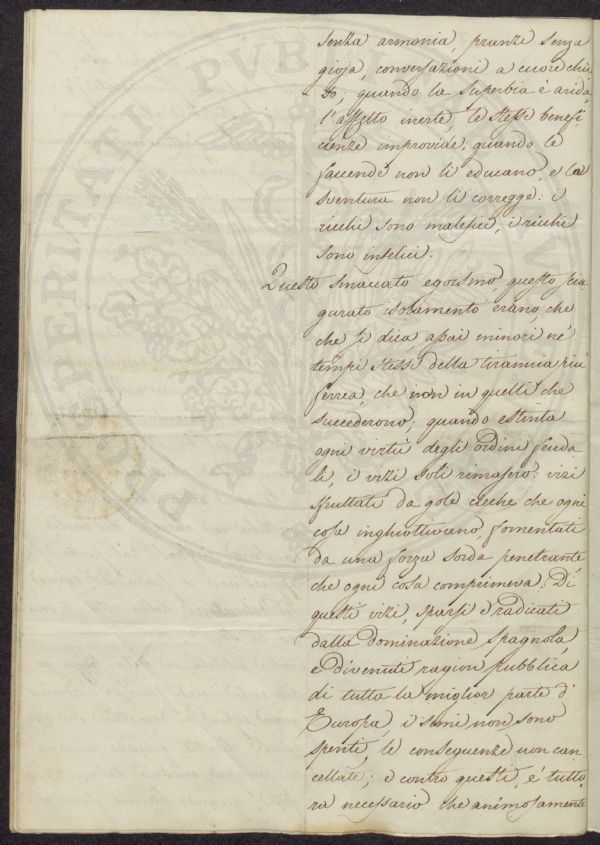 senza armonia, pranzi senza
gioja, conversazioni a cuore chiu
so, quando la superbia è arida,
l'affetto inerte le stesse benefi
cienze improvide, quando le
faccende non li educano, e la
sventura non li corregge: i
ricchi sono malefici, i ricchi
sono infelici.
Questo smaccato egoismo, questo scia
gurato isolamento erano, che
che si dica, assai minori ne'
tempi stessi della tirannia più
ferrea, che non in quelli che
succederono; quando estinta
ogni virtù degli ordini feuda
li, i vizi soli rimasero: vizi
sfruttati da gole cieche che ogni
cosa inghiottivano, fomentati
da una forza sorda penetrante
che ogni cosa comprimeva. Di
questi vizi, sparsi e radicati
dalla dominazione spagnola,
e divenuti ragion pubblica
di tutta la miglior parte d'
Europa, i semi non sono
spenti, le conseguenze non can
cellate; e contro questi, è tutto
ra necessario che animosamente
PUBL
PROSPERITATI